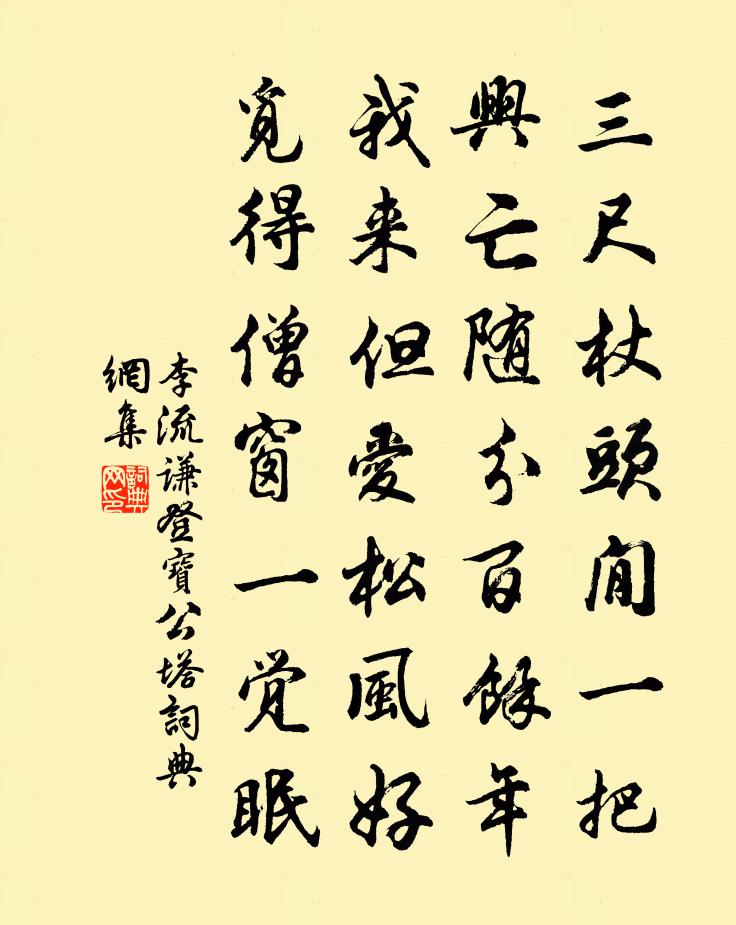 三尺杖頭閒一把
興亡随分百餘年
我来但愛松風好
覓得僧窗一覚眠
李流謙登寶公塔詞典
網集
詞典网印